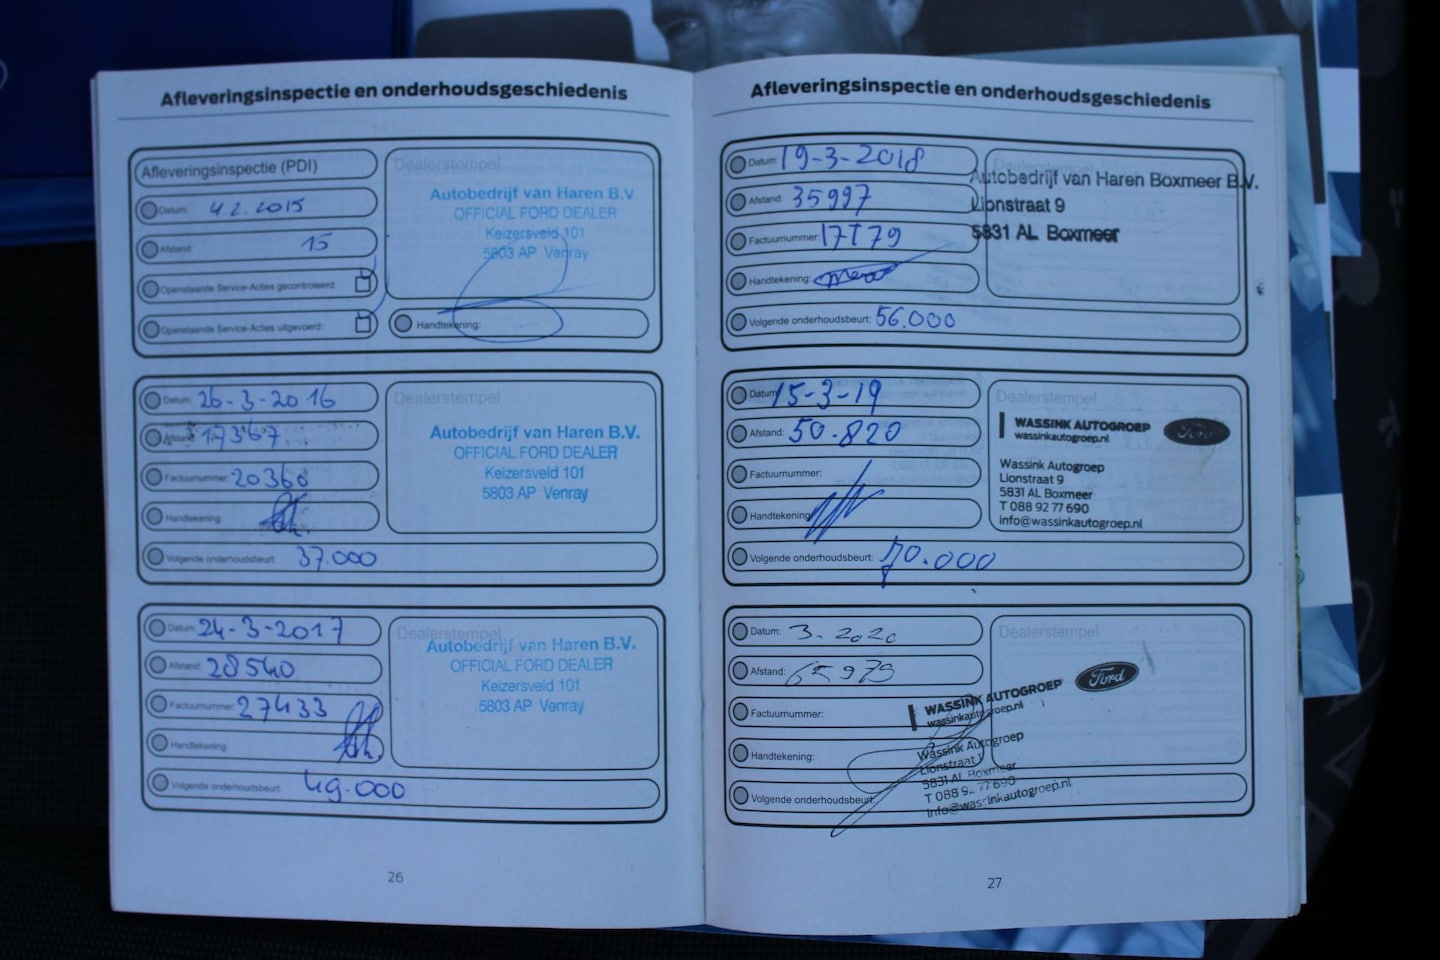 Afleveringsinspectie en onderhoudsgeschiedenis
Afleveringsinspectie (PDI)
Datum: 4 2. 2015
Afstand: 15
Openstaande Service-Acties gecontroleerd:
Openstaande Service-Acties uitgevoerd:
Dealerstempel
Autobedrijf van Haren B.V.
OFFICIAL FORD DEALER
Keizersveld 101
5803 AP Venray
Handtekening:
Datum: 26-3-2016
Afstand: 17367
Factuurnummer: 20360
Handtekening:
Volgende onderhoudsbeurt: 37.000
Dealerstempel
Autobedrijf van Haren B.V.
OFFICIAL FORD DEALER
Keizersveld 101
5803 AP Venray
Datum: 24-3-2017
Afstand: 28540
Factuurnummer: 27433
Handtekening:
Volgende onderhoudsbeurt: 49.000
Dealerstempel
Autobedrijf van Haren B.V.
OFFICIAL FORD DEALER
Keizersveld 101
5803 AP Venray
26
Afleveringsinspectie en onderhoudsgeschiedenis
Datum: 19-3-2018
Afstand: 35997
Factuurnummer:
Handtekening:
Volgende onderhoudsbeurt: 56.000
Dealerstempel
Autobedrijf van Haren Boxmeer B.V.
Lionstraat 9
5831 AL Boxmeer
Datum: 15-3-19
Afstand: 50.820
Factuurnummer:
Handtekening:
Volgende onderhoudsbeurt: 70.000
Dealerstempel
WASSINK AUTOGROEP
wassinkautogroep.nl
Ford
Wassink Autogroep
Lionstraat 9
5831 AL Boxmeer
T 088 92 77 690
info@wassinkautogroep.nl
Datum: 3. 2020
Afstand: 65979
Factuurnummer:
Handtekening:
Volgende onderhoudsbeurt:
Dealerstempel
WASSINK AUTOGROEP
wassinkautogroep.nl
Ford
Wassink Autogroep
Lionstraat
5831 AL Boxmeer
T 088 92 77 690
info@wassinkautogroep.nl
27